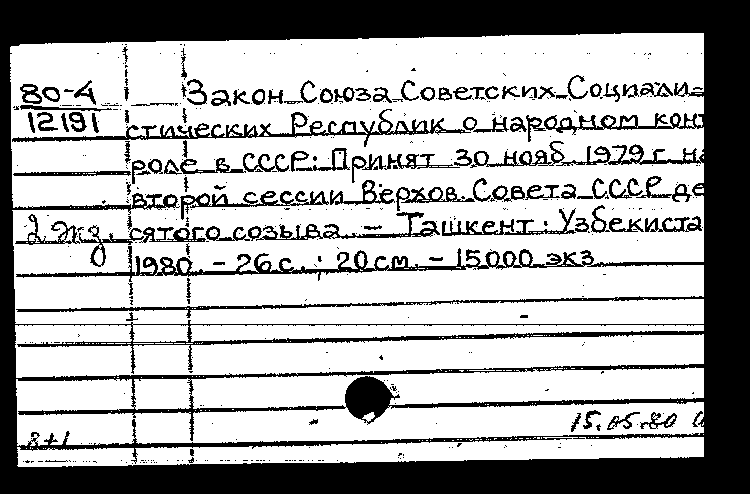 80-4
12191
Закон Союза Советских Социали-
стических Республик о народном конт
роле в СССР: Принят 30 нояб. 1979 г. на
второй сессии Верхов. Совета СССР де
сятого созыва. – Ташкент: Узбекиста
2 экз.
1980. – 26 с.; 20 см. – 15000 экз.
15.05.80
8+1